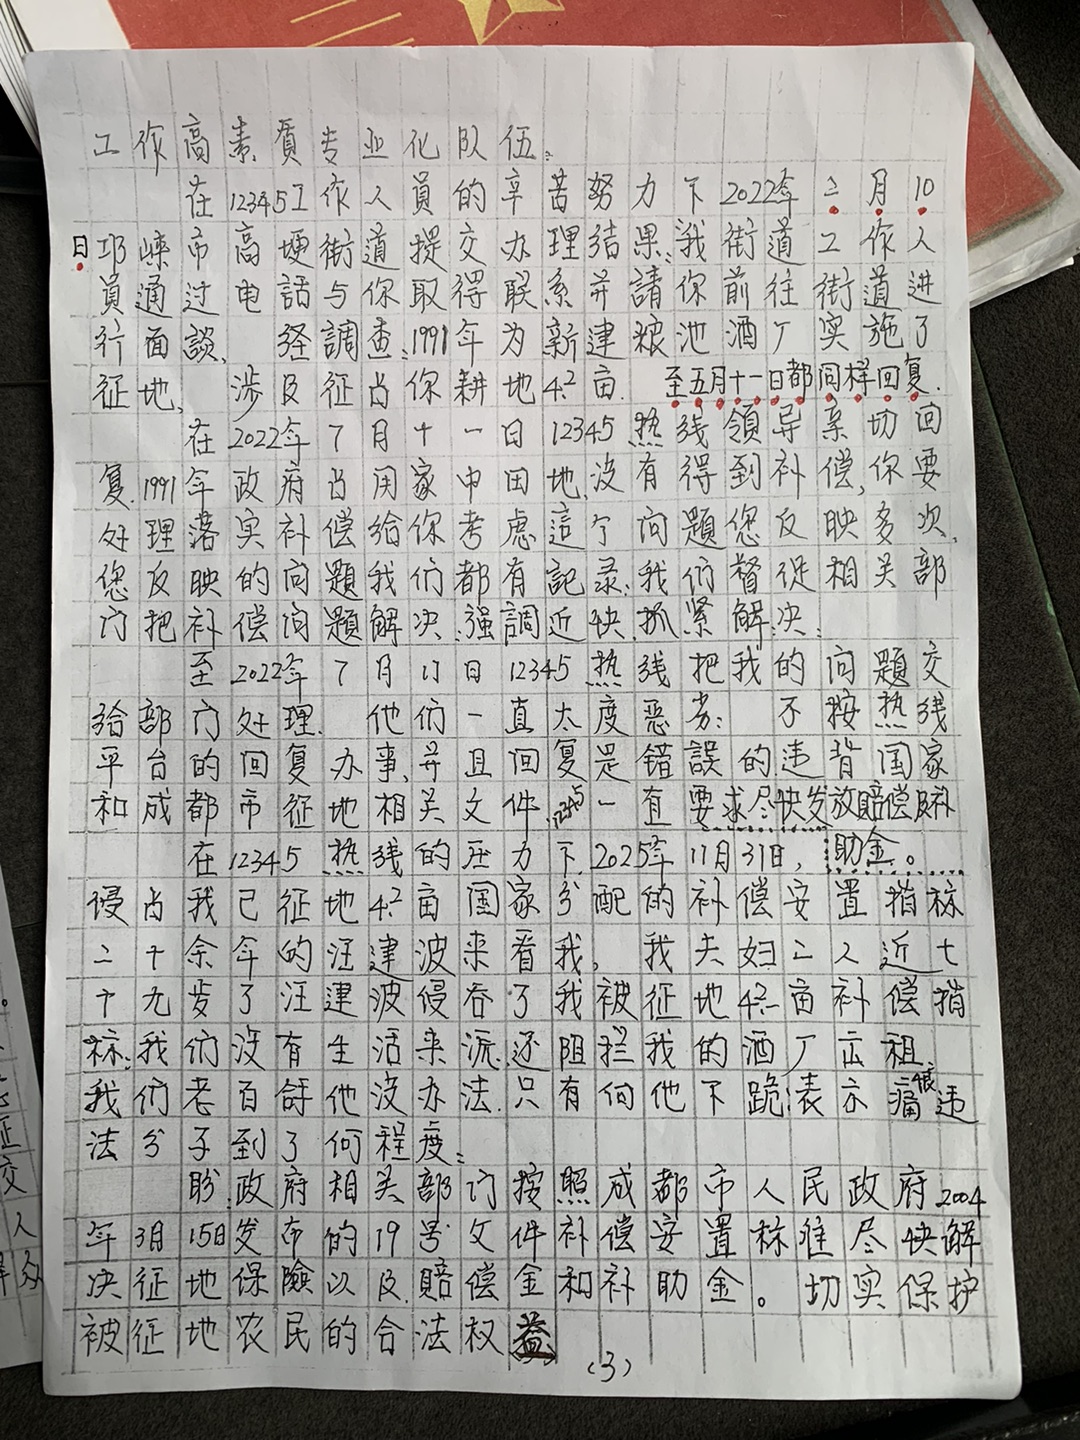 工作高素質专业化队伍:
在12345工作人員的辛苦努力下2022年二月10
日邛崃市高埂街道提交办理结果:我街道工作人
員通过电話与你取得联系并請你前往街道进
行面談、经調查:1991年为新建粮池酒厂实施了
征地、涉及征占你耕地4.2亩 至五月十一日都同样回复.
在2022年7月十一日12345热线領导亲切回
复.1991年政府占用家中田地,没有得到补偿,你要
处理落实补偿给你考虑這个问題您反映多次,
您反映的问題我们都有記录:我们督促相关部
门把补偿问題解决.强調近快.抓紧解决:
至2022年7月17日12345热线把我的问題交
给部门处理. 他们一直太度恶劣: 不按热线
平台的回复办事,并且回复是错誤的.违背国家
和成都市征地相关文件,12345一直要求尽快发放賠偿及补
助金。
在12345热线的压力下.2025年11月31日,
侵占我已征地4.2亩国家分配的补偿安置指标
二十余年的汪建波来看我。我夫妇二人近七
十九岁了汪建波侵吞了我被征地4.2亩补偿指
标:我们没有生活来源.还阻拦我的酒厂出租.
我们老百姓他没办法.只有向他下跪:表示痛恨违
法分子到了何程度:
盼.政府相关部门按照成都市人民政府2004
年3月15日发布的19号文件补偿安置标准尽快解
决征地保險以及.賠偿金和补助金。切实保护
被征地农民的合法权益
(3)